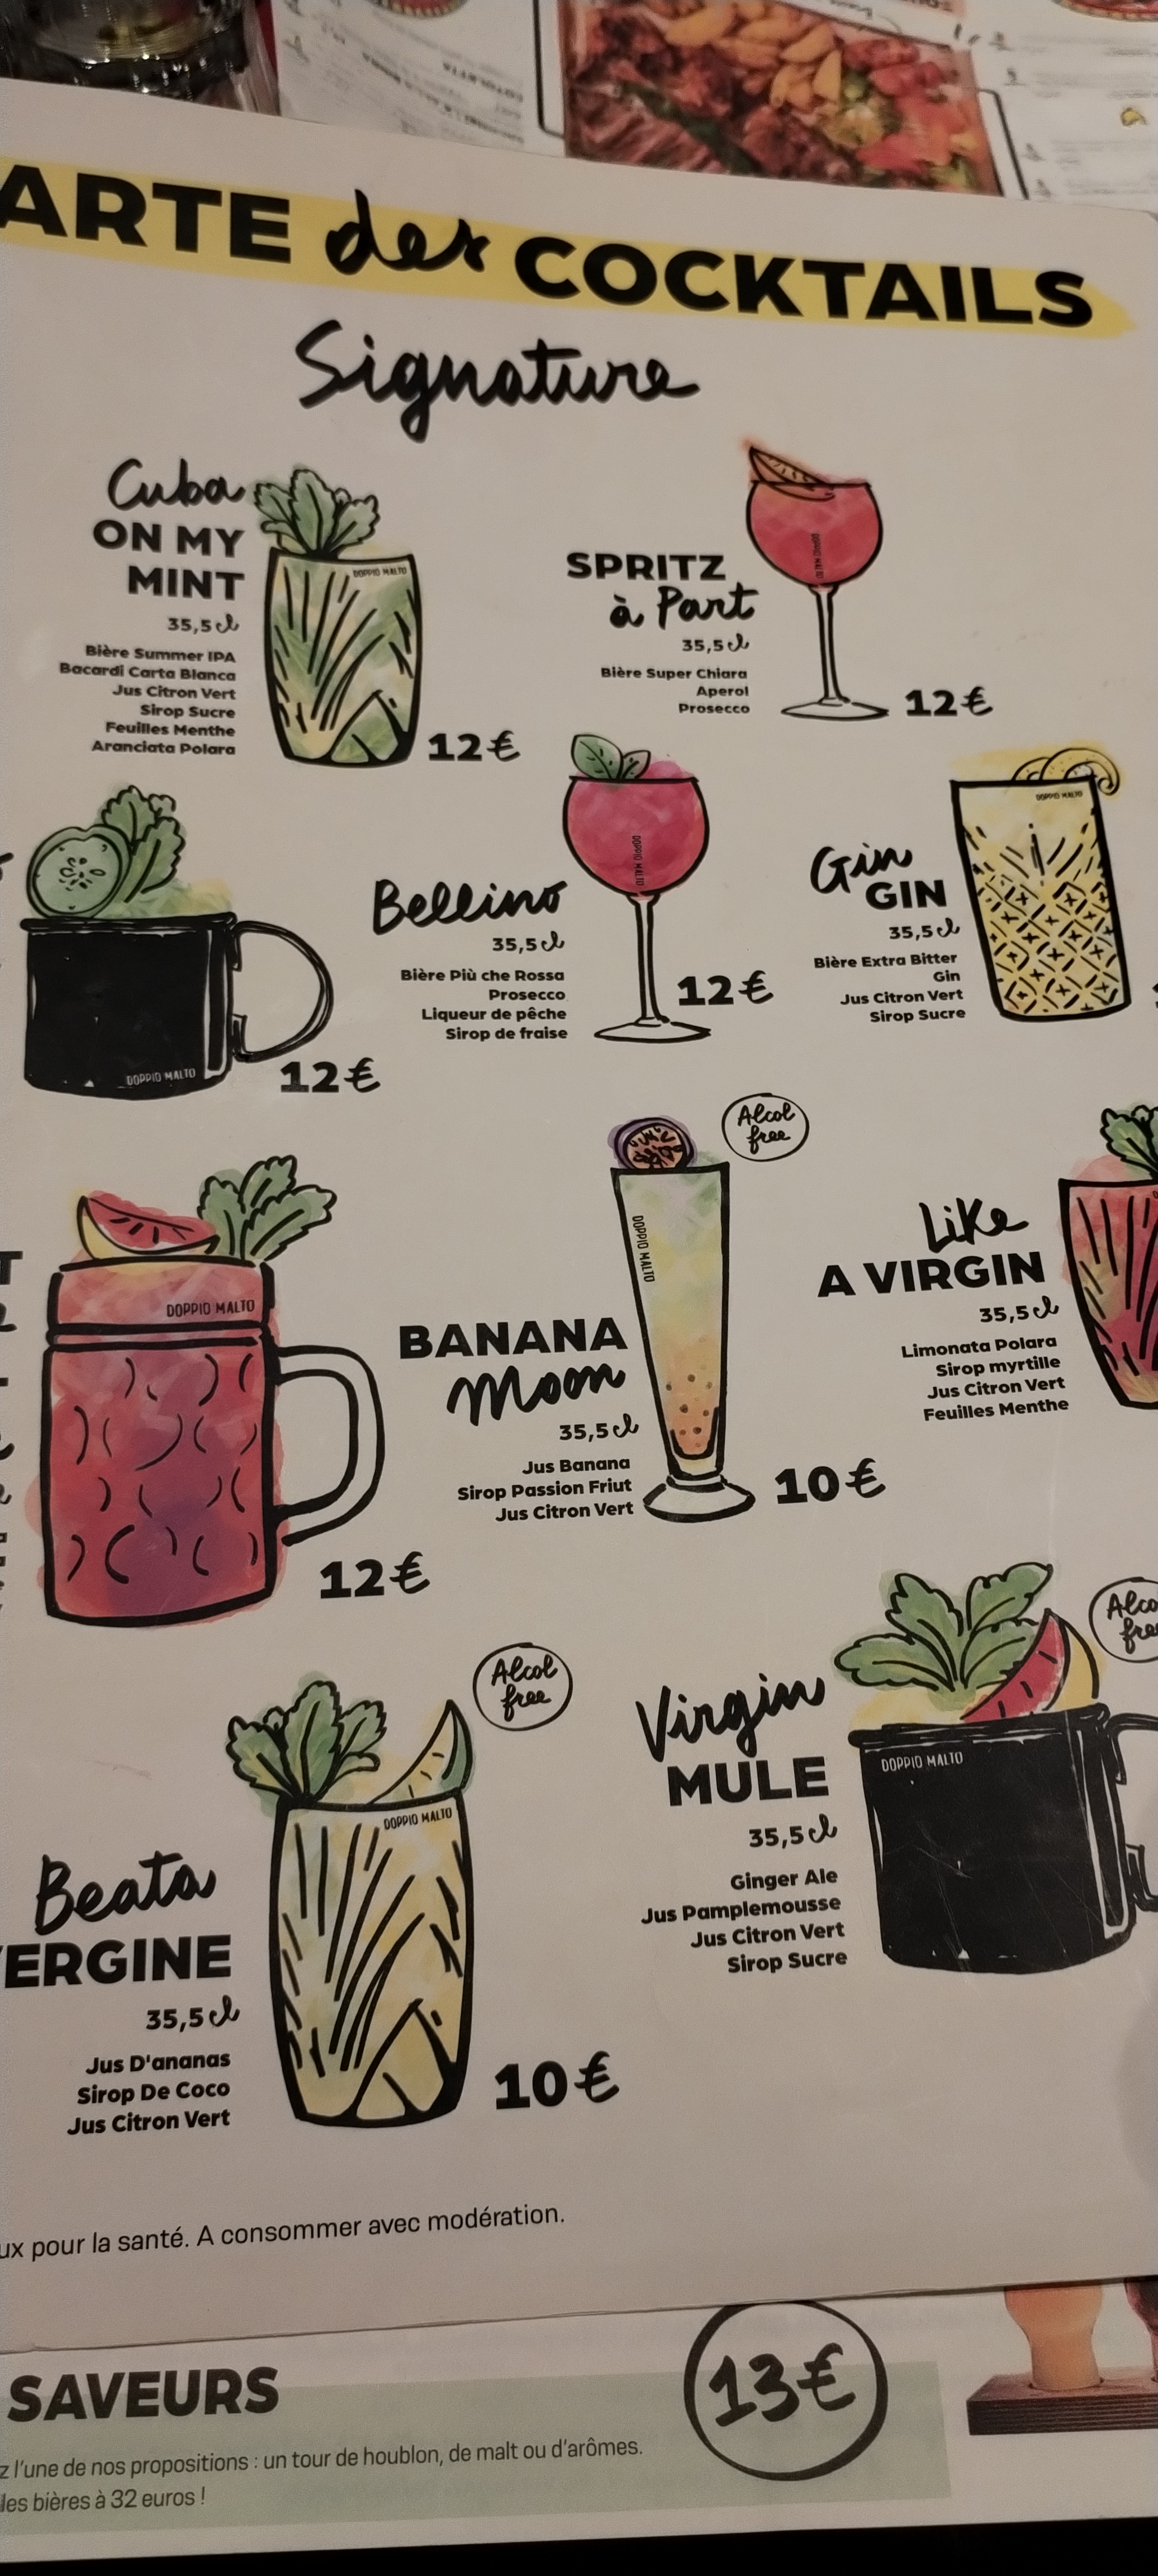 ARTE des COCKTAILS
Signature
Cuba
ON MY
MINT
35,5 cl
Bière Summer IPA
Bacardi Carta Blanca
Jus Citron Vert
Sirop Sucre
Feuilles Menthe
Aranciata Polara
DOPPIO MALTO
12€
SPRITZ
à Part
35,5 cl
Bière Super Chiara
Aperol
Prosecco
DOPPIO MALTO
12€
DOPPIO MALTO
12€
Bellino
35,5 cl
Bière Più che Rossa
Prosecco
Liqueur de pêche
Sirop de fraise
DOPPIO MALTO
12€
Gin
GIN
35,5 cl
Bière Extra Bitter
Gin
Jus Citron Vert
Sirop Sucre
DOPPIO MALTO
DOPPIO MALTO
12€
Alcol
free
BANANA
Moon
35,5 cl
Jus Banana
Sirop Passion Friut
Jus Citron Vert
DOPPIO MALTO
10€
Like
A VIRGIN
35,5 cl
Limonata Polara
Sirop myrtille
Jus Citron Vert
Feuilles Menthe
Alcol
free
Beata
VERGINE
35,5 cl
Jus D'ananas
Sirop De Coco
Jus Citron Vert
DOPPIO MALTO
10€
Alco
free
Virgin
MULE
35,5 cl
Ginger Ale
Jus Pamplemousse
Jus Citron Vert
Sirop Sucre
DOPPIO MALTO
ux pour la santé. A consommer avec modération.
SAVEURS
13€
z l'une de nos propositions : un tour de houblon, de malt ou d'arômes.
les bières à 32 euros !